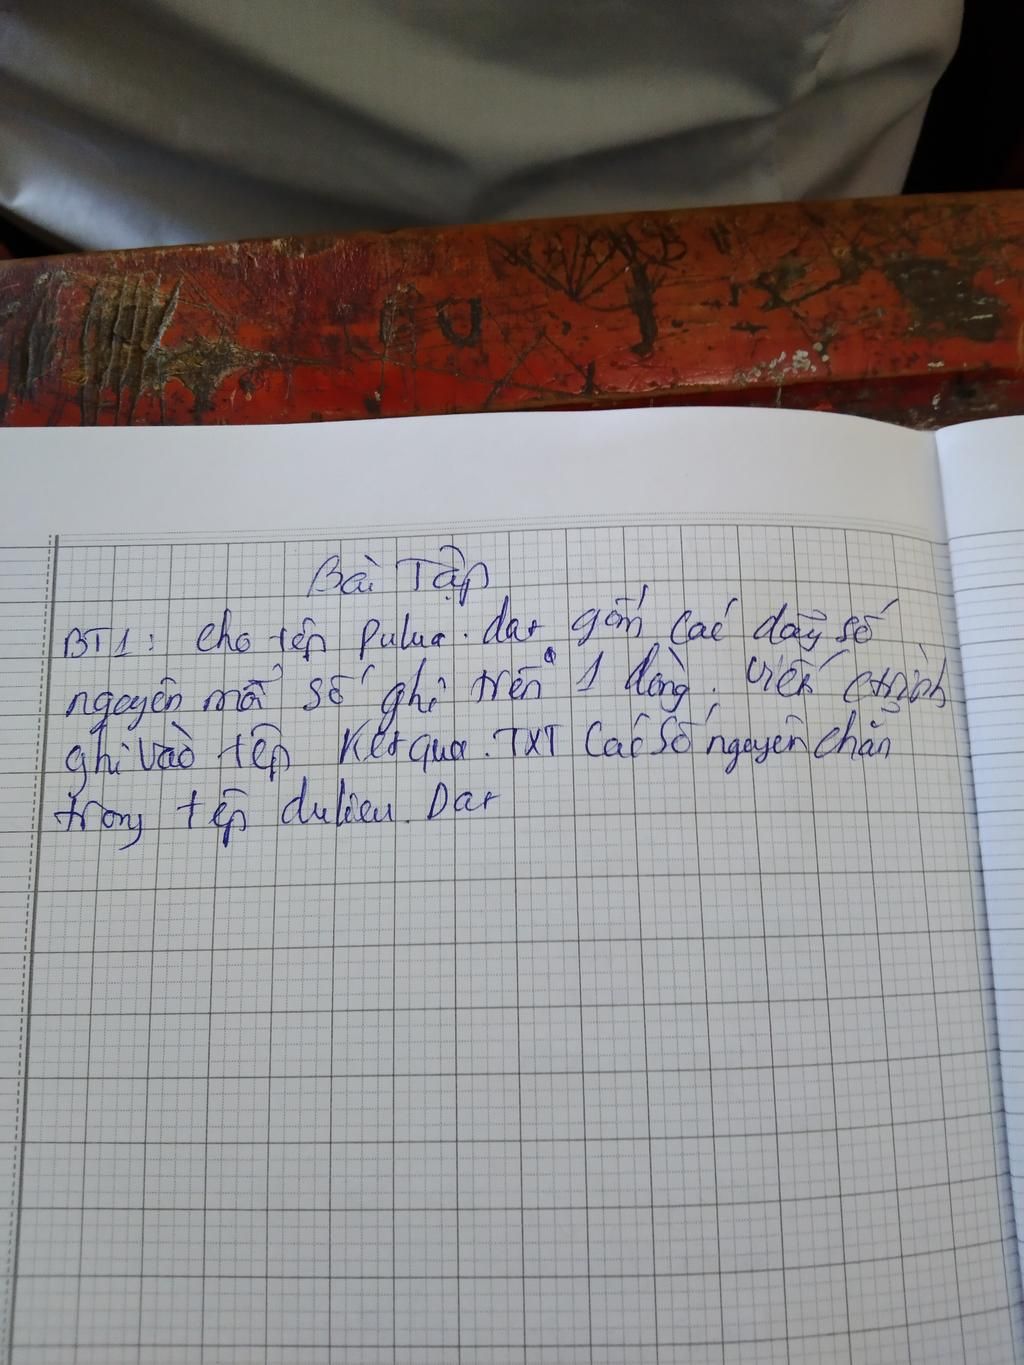 Bài Tập
BT1: Cho tệp dulieu.dat gồm các dãy số
nguyên mỗi số ghi trên 1 dòng. Viết ctrình
ghi vào tệp Ketqua.TXT Các số nguyên chẵn
trong tệp dulieu.Dat